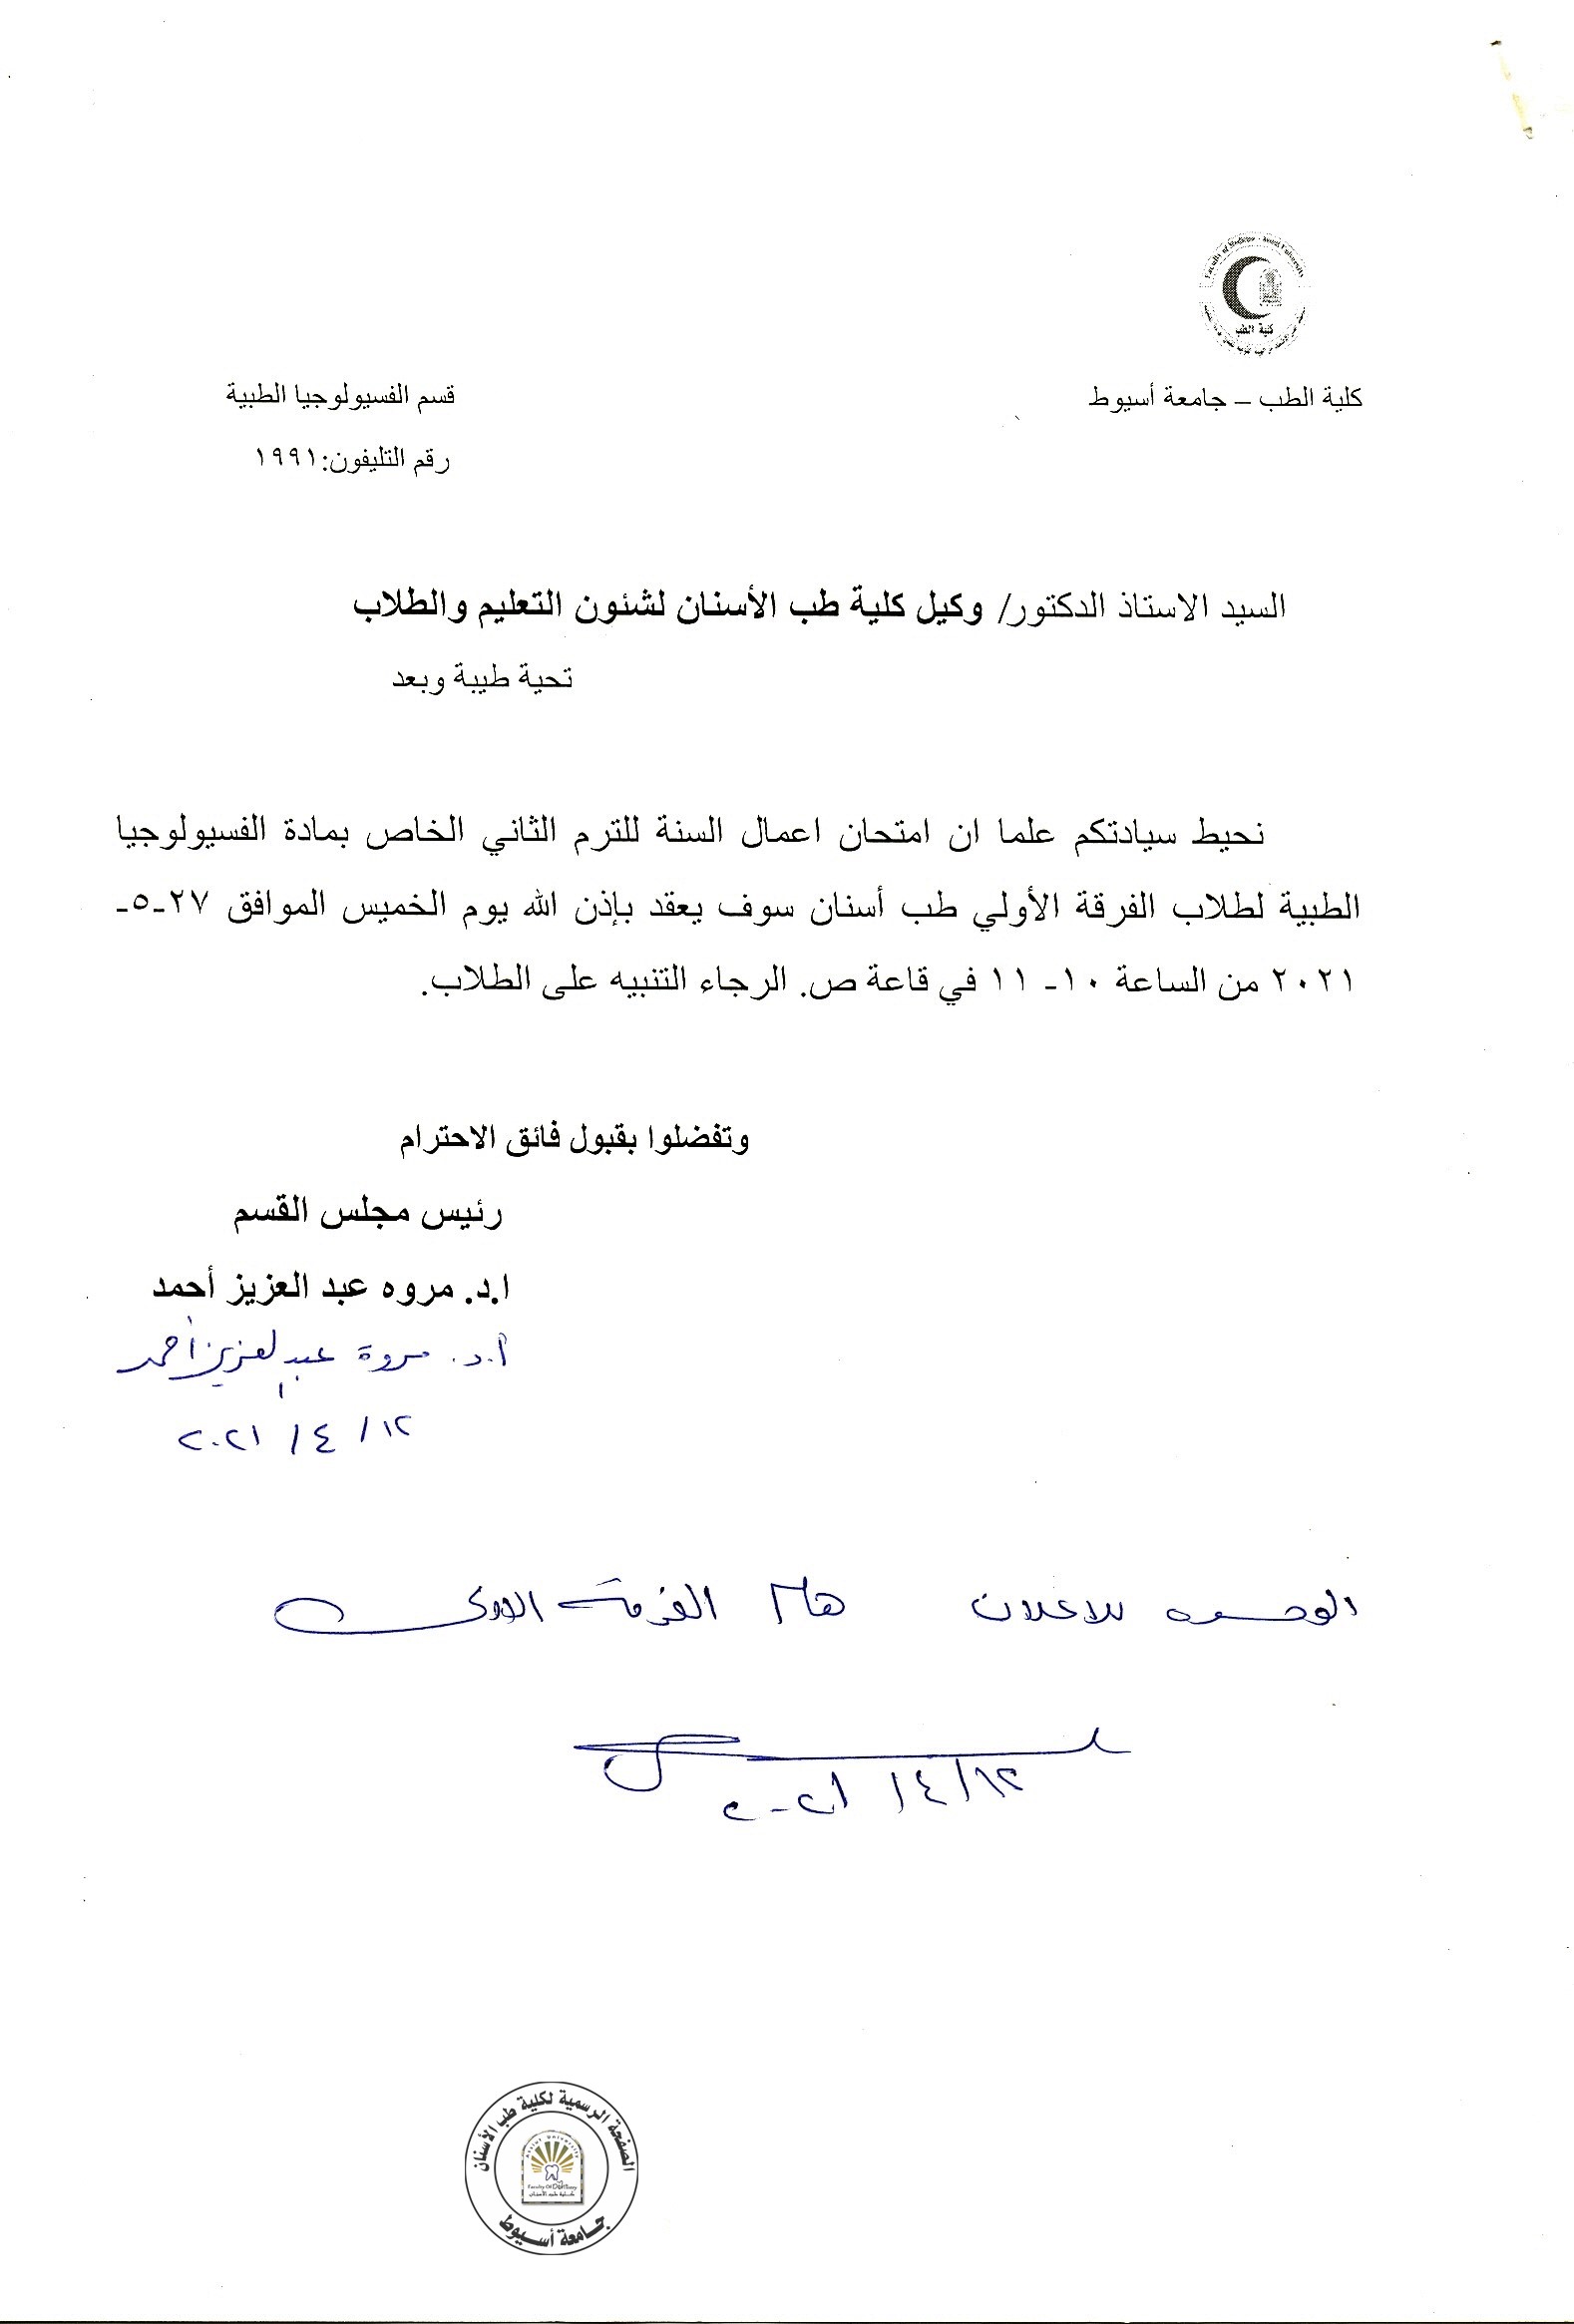 Faculty of Medicine - Assiut University
كلية الطب
كلية الطب – جامعة أسيوط
قسم الفسيولوجيا الطبية
رقم التليفون:١٩٩١
السيد الاستاذ الدكتور/ وكيل كلية طب الأسنان لشئون التعليم والطلاب
تحية طيبة وبعد
نحيط سيادتكم علما ان امتحان اعمال السنة للترم الثاني الخاص بمادة الفسيولوجيا
الطبية لطلاب الفرقة الأولي طب أسنان سوف يعقد بإذن الله يوم الخميس الموافق ٢٧-٥-
٢٠٢١ من الساعة ١٠- ١١ في قاعة ص. الرجاء التنبيه على الطلاب.
وتفضلوا بقبول فائق الاحترام
رئيس مجلس القسم
ا.د. مروه عبد العزيز أحمد
أ.د. مروة عبد العزيز أحمد
١٢/ ٤/ ٢٠٢١
للاعلان هام الفرقة الاولى
١٢/٤/ ٢٠٢١
الصفحة الرسمية لكلية طب الأسنان
Assiut University
Faculty Of Dentistry
كلية طب الأسنان
جامعة أسيوط